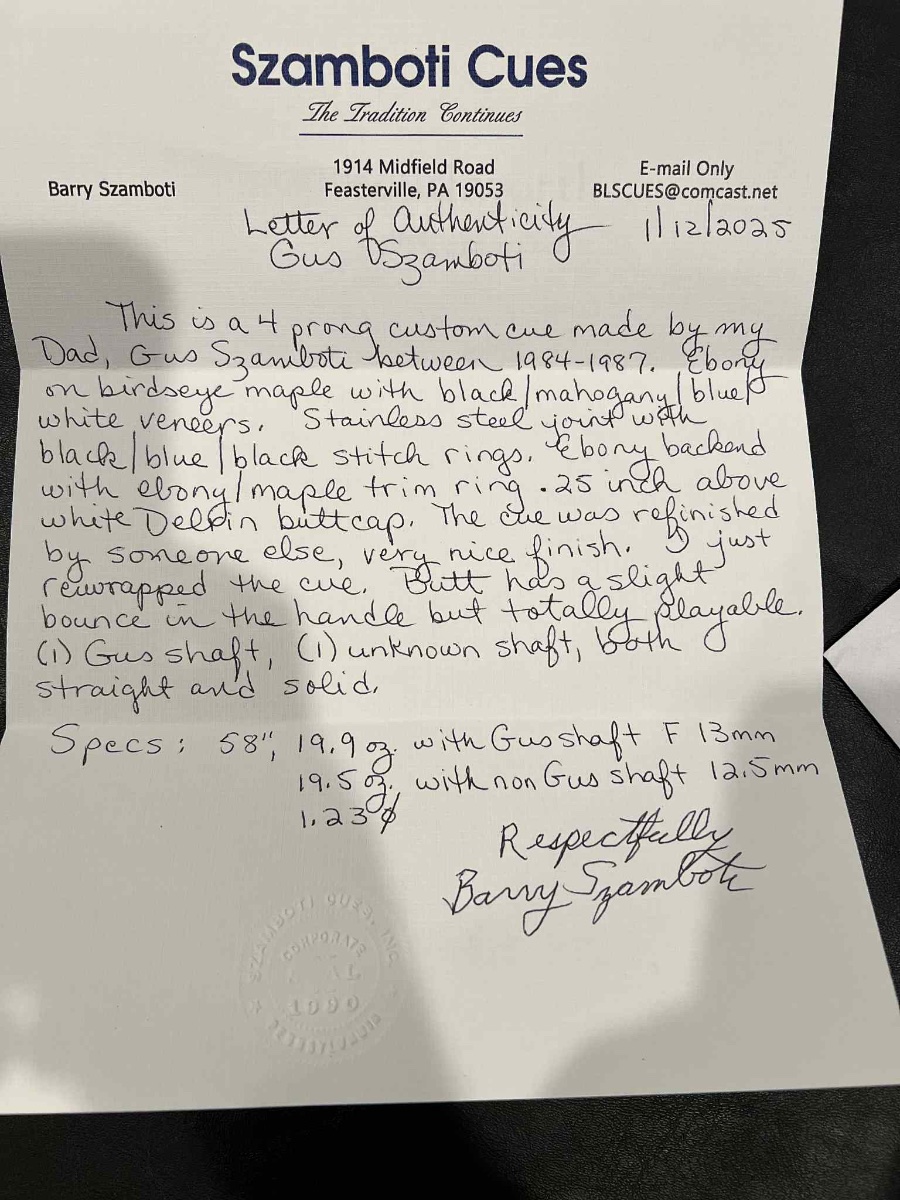 Szamboti Cues
The Tradition Continues
1914 Midfield Road
E-mail Only
Barry Szamboti
Feasterville, PA 19053
BLSCUES@comcast.net
Letter of Authenticity 1/12/2025
Gus Szamboti
This is a 4 prong custom cue made by my
Dad, Gus Szamboti between 1984-1987. Ebony
on birdseye maple with black/mahogany/blue/
white veneers. Stainless steel joint with
black/blue/black stitch rings. Ebony backend
with ebony/maple trim ring .25 inch above
white Delrin buttcap. The cue was refinished
by someone else, very nice finish. I just
rewrapped the cue. Butt has a slight
bounce in the handle but totally playable.
(1) Gus shaft, (1) unknown shaft, both
straight and solid.
Specs: 58", 19.9 oz. with Gus shaft F 13mm
19.5 oz., with non Gus shaft 12.5mm
1.23 ∅
Respectfully
Barry Szamboti
SZAMBOTI CUES, INC.
CORPORATE
1990